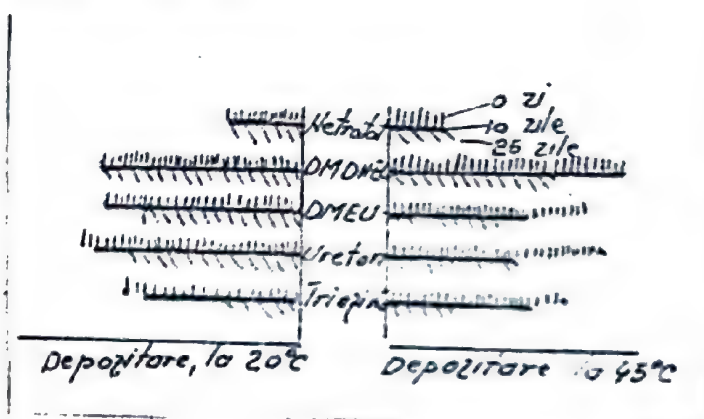 0 zi
Netratat
10 zile
25 zile
DMDHEU
DMEU
Ureton
Triazin
Depozitare, la 20°C
Depozitare la 45°C